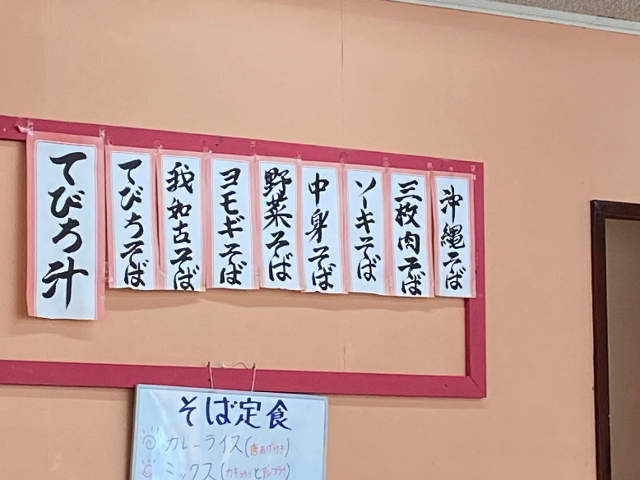 沖縄そば
三枚肉そば
ソーキそば
中身そば
野菜そば
ヨモギそば
我如古そば
てびちそば
てびち汁
そば定食
カレーライス(唐あげ付き)
ミックス(カキフライとアジフライ)